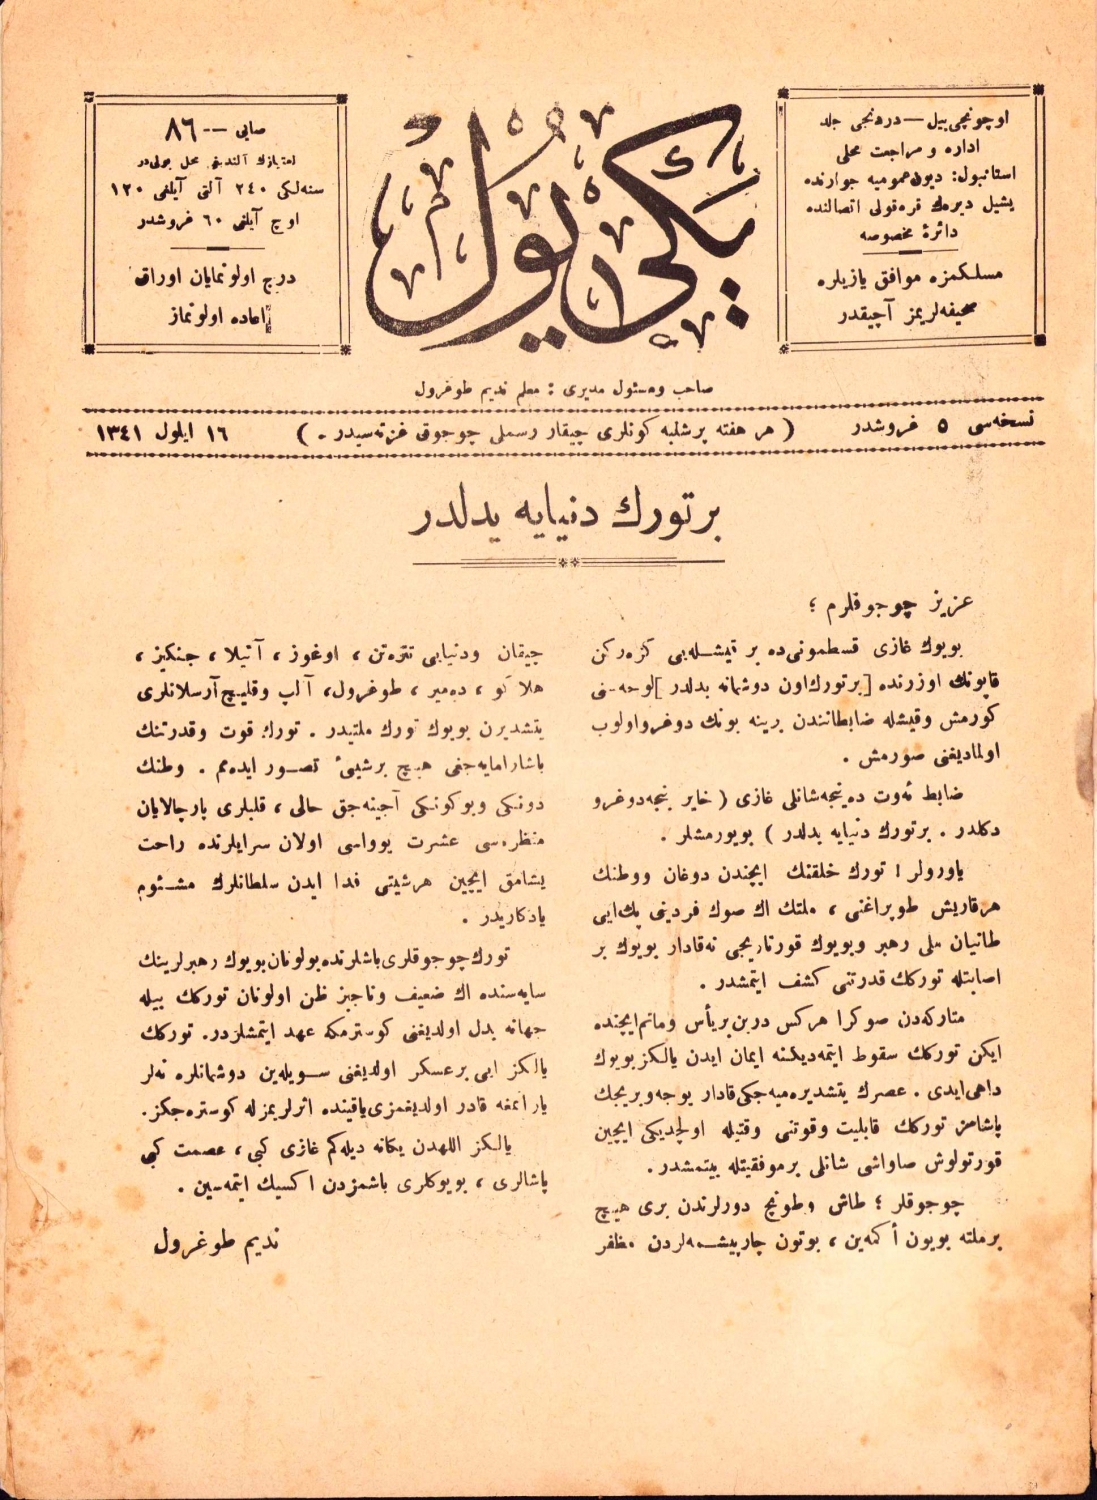 اوچونجی ییل — دردنجی جلد
اداره و مراجعت محلی
استانبول: دیون عمومیه جوارنده
یشیل دیرەك قره قولی اتصالنده
دائرهٔ مخصوصه
مسلكمزه موافق یازیلره
صحیفه‌لریمز آچیقدر
یكی یول
صایی — ٨٦
سنه‌لكی ٢٤٠ آلتی آیلغی ١٢٠
اوچ آیلغی ٦٠ غروشدر
درج اولونمایان اوراق
اعاده اولونماز
صاحب ومسئول مدیری : معلم ندیم طوغرول
نسخه‌سی ٥ غروشدر
( هر هفته پرشنبه كونلری چیقار رسملی چوجوق غزته‌سیدر . )
١٦ ایلول ١٣٤١
بر تورك دنیایه بدلدر
عزیز چوجوقلرم ؛
بویوك غازی قسطمونی‌ده بر قیشله‌یی كزه‌ركن
قاپونك اوزرنده [برتورك اون دوشمانه بدلدر] لوحه‌سنی
كورمش وقیشله ضابطانندن برینه بونك دوغرو اولوب
اولمادیغنی صورمش .
ضابط ئه‌وت ده‌ینجه شانلی غازی ( خایر بنجه دوغرو
دكلدر . برتورك دنیایه بدلدر ) بویورمشلر .
یاورولر ! تورك خلقنك ایچندن دوغان ووطنك
هر قاریش طوپراغنی ، ملتك اك صوك فردینی پك ایی
طانیان ملی رهبر وبویوك قورتاریجی نه‌قادار بویوك بر
اصابتله توركك قدرتنی كشف ایتمشدر .
متاركه‌دن صوكرا هركس درین بریأس وماتم ایچنده
ایكن توركك سقوط ایتمه‌دیكنه ایمان ایدن یالكز بویوك
داهی ایدی . عصرك یتشدیره‌میه‌جكی قادار یوجه وبریجك
پاشامز توركك قابلیت وقوتنی وقتیله اولچدیكی ایچین
قورتولوش صاواشی شانلی برموفقیتله بیتمشدر .
چوجوقلر ؛ طاش وطونج دورلرندن بری هیچ
برملته بویون أكمه‌ین ، بوتون چارپیشمه‌لردن مظفر
چیقان ودنیایی تتره‌تن ، اوغوز ، آتیلا ، جنكیز ،
هلاكو ، ده‌میر ، طوغرول، آلپ وقلیچ آرسلانلری
یتشدیرن بویوك تورك ملتیدر . تورك قوت وقدرتنك
باشارامایه‌جغی هیچ برشیئ تصور ایده‌مم . وطنك
دونكی وبوكونكی آجینه‌جق حالی ، قلبلری پارچالایان
منظره‌سی عشرت یوواسی اولان سرایلرنده راحت
یشامق ایچین هرشیئی فدا ایدن سلطانلرك مشئوم
یادكاریدر .
تورك چوجوقلری باشلرنده بولونان بویوك رهبرلرینك
سایه‌سنده اك ضعیف وناچیز ظن اولونان توركك بیله
جهانه بدل اولدیغنی كوسترمكه عهد ایتمشلردر. توركك
یالكز ایی برعسكر اولدیغنی سویله‌ین دوشمانلره نه‌لر
یاراتمغه قادر اولدیغمزی یاقینده اثرلریمزله كوستره‌جكز.
یالكز اللهدن یكانه دیله‌كم غازی كبی ، عصمت كبی
پاشالری ، بویوكلری باشمزدن اكسیك ایتمه‌سین .
ندیم طوغرول